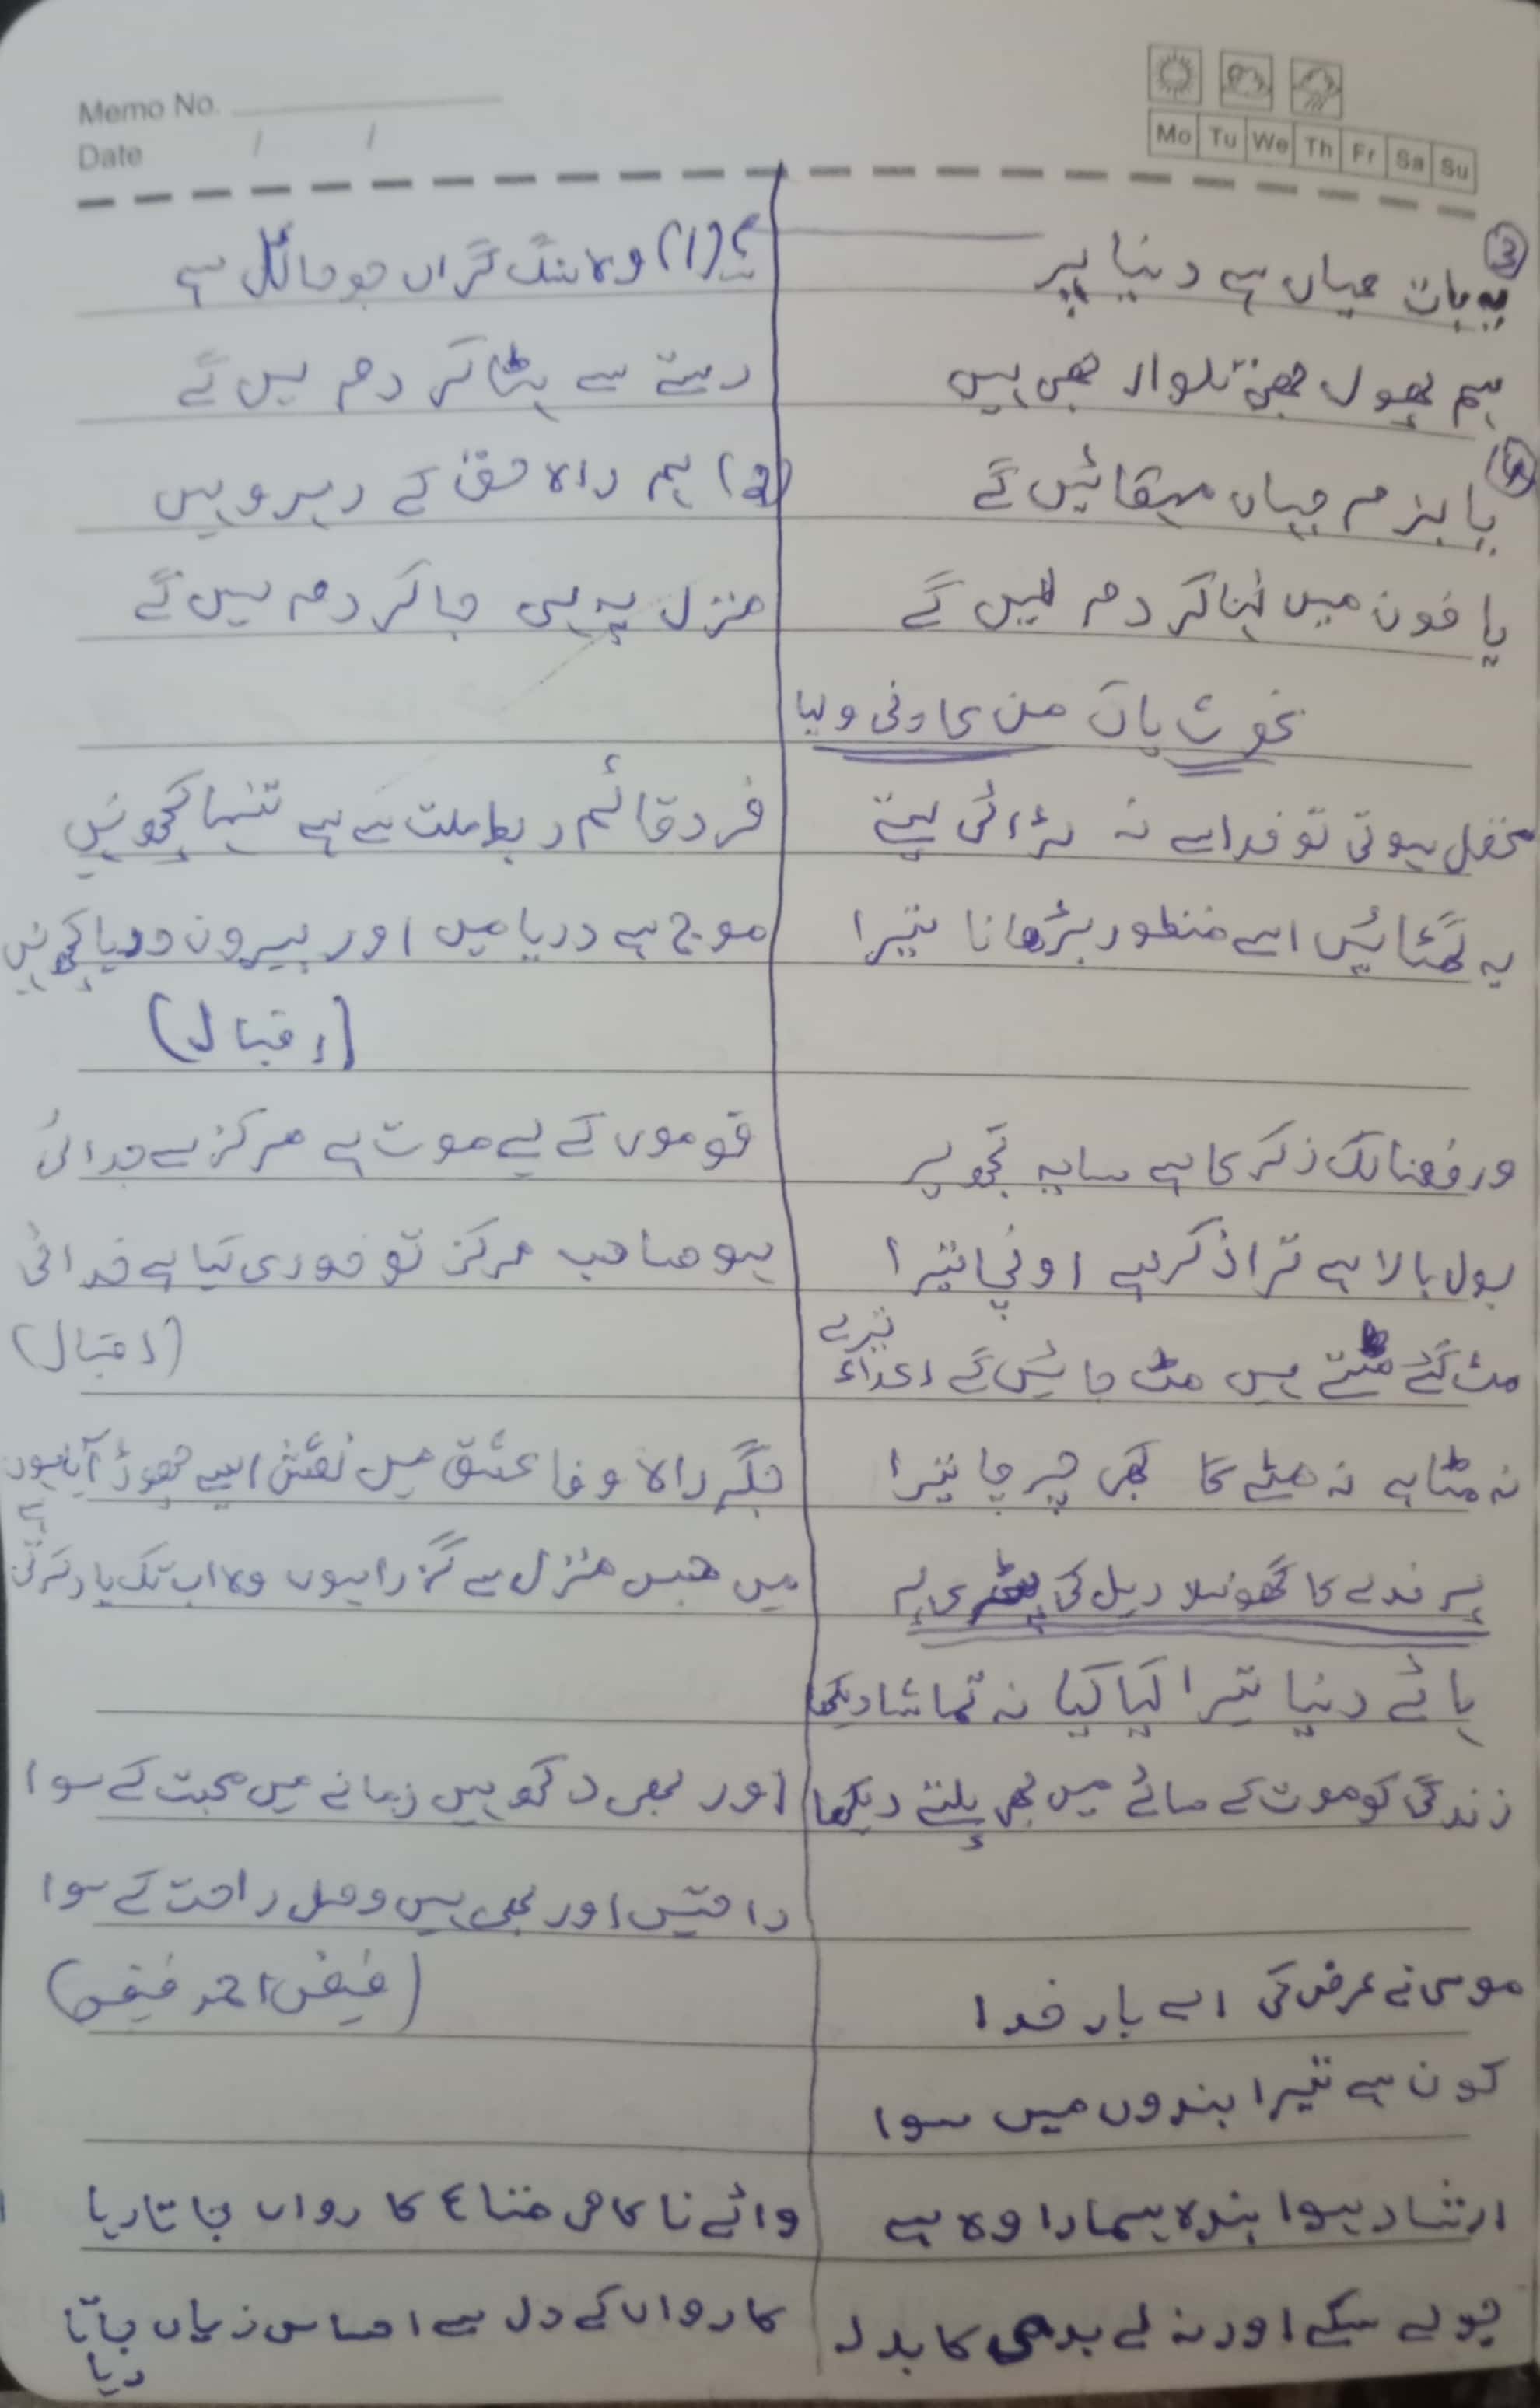 Memo No.
Date / /
Mo Tu We Th Fr Sa Su
③
یہ بات عیاں ہے دنیا پر
ہم پھول بھی تلوار بھی ہیں
④
یا بزم جہاں مہکائیں گے
یا خون میں نہا کر دم لیں گے
غوث پاک
عقل ہوتی تو خدا سے نہ لڑائی لیتے
یہ گھٹائیں اسے منظور بڑھانا تیرا
ورفعنا لک ذکر کا ہے سایہ تجھ پر
بول بالا ہے ترا ذکر ہے اونچا تیرا
مٹ گئے مٹتے ہیں مٹ جائیں گے اعداء تیرے
نہ مٹا ہے نہ مٹے گا کبھی چرچا تیرا
پرندے کا گھونسلا ریل کی پٹڑی پہ
ہائے دنیا تیرا کیا کیا نہ تماشا دیکھا
زندگی کو موت کے سائے میں بھی پلتے دیکھا
موسی نے عرض کی اے بار خدا
کون ہے تیرا بندوں میں سوا
ارشاد ہوا بندہ ہمارا وہ ہے
جو لے سکے اور نہ لے بدی کا بدلہ
(1) وہ سنگ گراں جو حائل ہے
رستے سے ہٹا کر دم لیں گے
(2) ہم راہ حق کے رہرو ہیں
منزل پہ ہی جا کر دم لیں گے
فرد قائم ربط ملت سے ہے تنہا کچھ نہیں
موج ہے دریا میں اور بیرون دریا کچھ نہیں
(اقبال)
قوموں کے لیے موت ہے مرکز سے جدائی
ہو صاحب مرکز تو خودی کیا ہے خدائی
(اقبال)
جگر راہ وفا عشق میں نقش ایسے چھوڑ آیا ہوں
میں جس منزل سے گزرا ہوں وہ اب تک یاد کرتی ہے
اور بھی دکھ ہیں زمانے میں محبت کے سوا
راحتیں اور بھی ہیں وصل راحت کے سوا
(فیض احمد فیض)
وائے ناکامی متاع کارواں جاتا رہا
کارواں کے دل سے احساس زیاں جاتا رہا